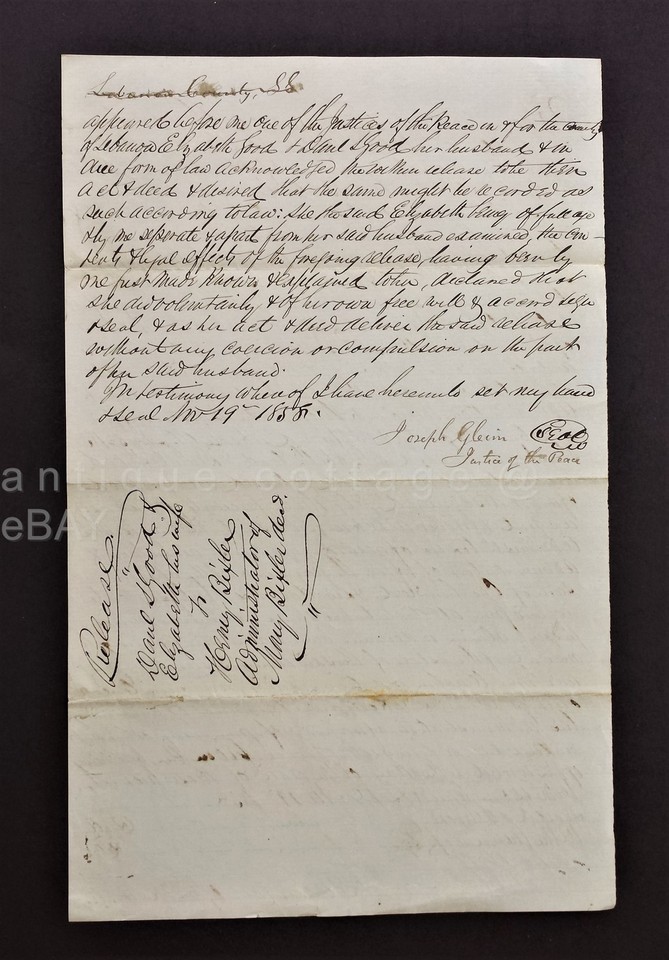 Lebanon County, SS
appeared before me one of the Justices of the Peace in & for the County
of Lebanon Elizabeth Good & Danl S Good her husband & in
due form of law acknowledged the within release to be their
act & deed & desired that the same might be recorded as
such according to law: She the said Elizabeth being of full age
& by me seperate & apart from her said husband examined, the con-
tents & legal effects of the foregoing release, having been by
me first made known & explained to her, declared that
she did voluntarily & of her own free will & accord sign
& seal, & as her act & deed deliver the said release
without any coercion or compulsion on the part
of her said husband.
In testimony whereof I have hereunto set my hand
& seal Nov 19th 1858.
Joseph Gleim Seal
Justice of the Peace
antique cottage @
eBAY
Release.
Danl S Good &
Elizabeth his wife
to
Henry Bixler
Administrator of
Mary Bixler decd.